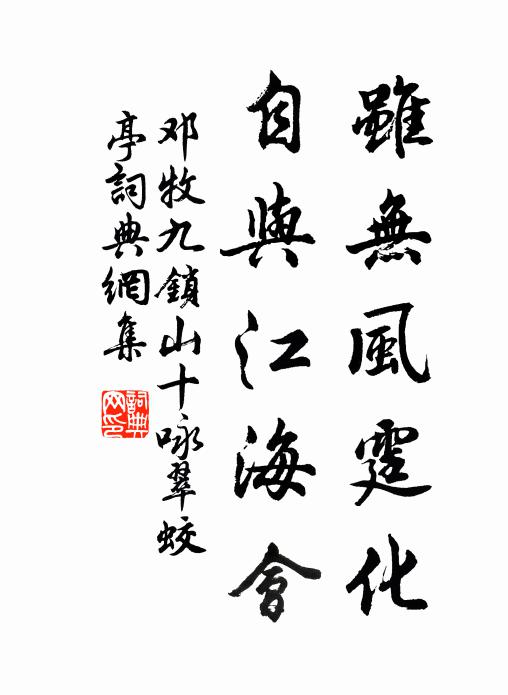 雖無風霆化
自與江海會
邓牧九鎖山十咏翠蛟
亭詞典網集
詞典网印